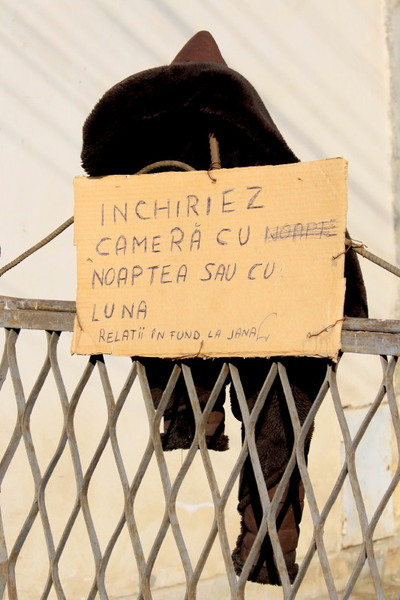 INCHIRIEZ
CAMERĂ CU NOAPTE
NOAPTEA SAU CU
LUNA
RELAȚII IN FUND LA JANA